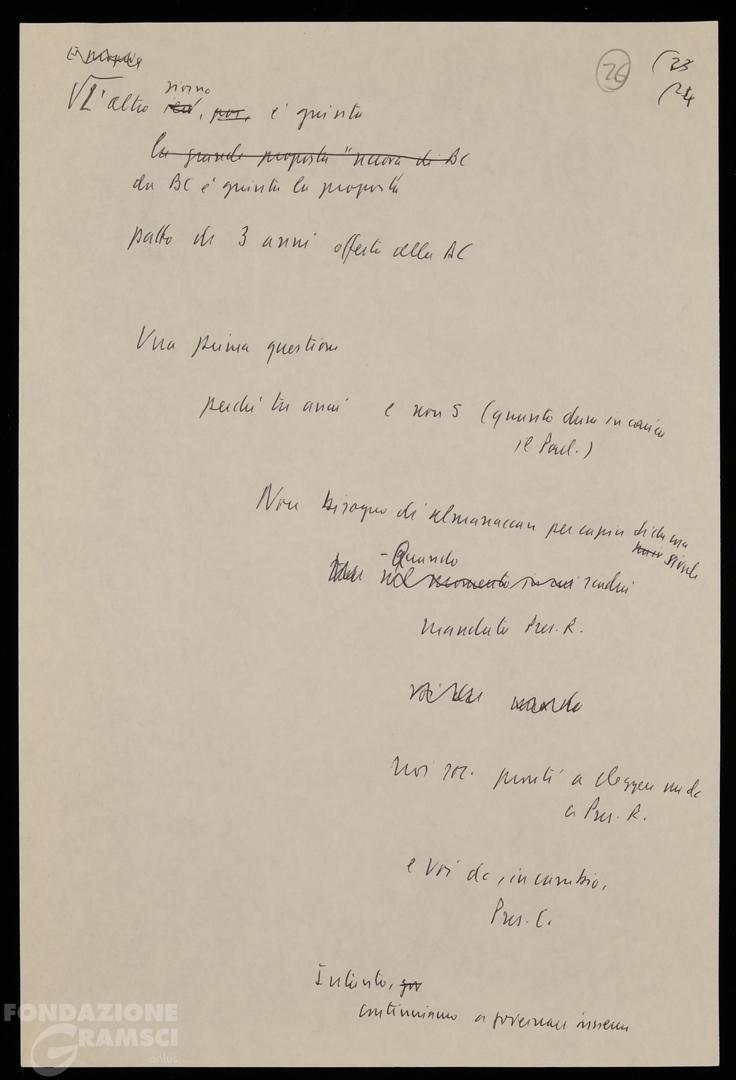 26
(23
(24
L'altro giorno, poi, è giunta
la grande proposta "nuova di BC
da BC è giunta la proposta
patto di 3 anni offerto alla DC
Una prima questione
perché tre anni e non 5 (quanto dura in carica
il Parl.)
Non bisogno di almanaccare per capire
- Quando
nel momento in cui scadrà
mandato Pres. R.
noi soc. pronti a eleggere un dc
a Pres. R.
e voi dc, in cambio,
Pres. C.
Intanto,
continuiamo a governare insieme
FONDAZIONE
GRAMSCI
onlus